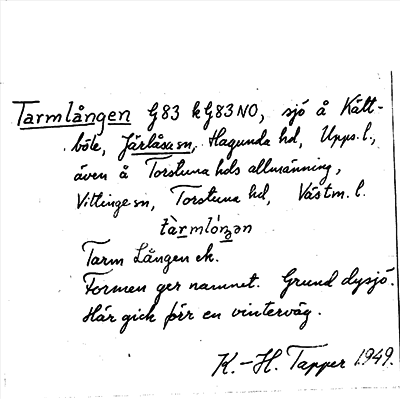 Tarmlången G83 kG83NO, sjö å Kätt-
böle, Järlåsa sn, Hagunda hd, Upps. l.,
även å Torstuna hds allmänning,
Vittinge sn, Torstuna hd, Västm. l.
tàrmlóŋən
Tarm Lången ek.
Formen ger namnet. Grund dysjö.
Här gick förr en vinterväg.
K.-H. Tapper 1949.